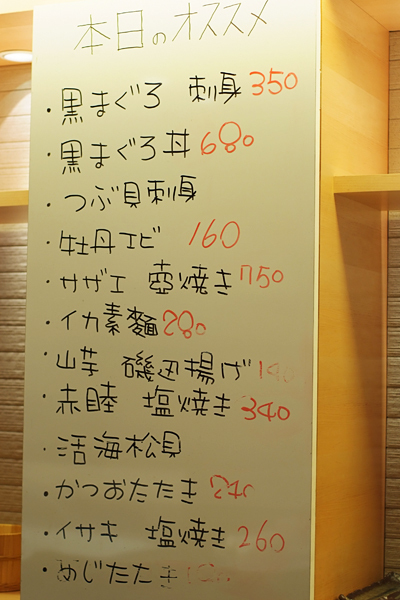 本日のオススメ
・黒まぐろ 刺身 350
・黒まぐろ丼 680
・つぶ貝刺身
・牡丹エビ 160
・サザエ 壺焼き 750
・イカ素麺 280
・山芋 磯辺揚げ
・赤睦 塩焼き 340
・活海松貝
・かつおたたき 240
・イサキ 塩焼き 260
・めじたたき